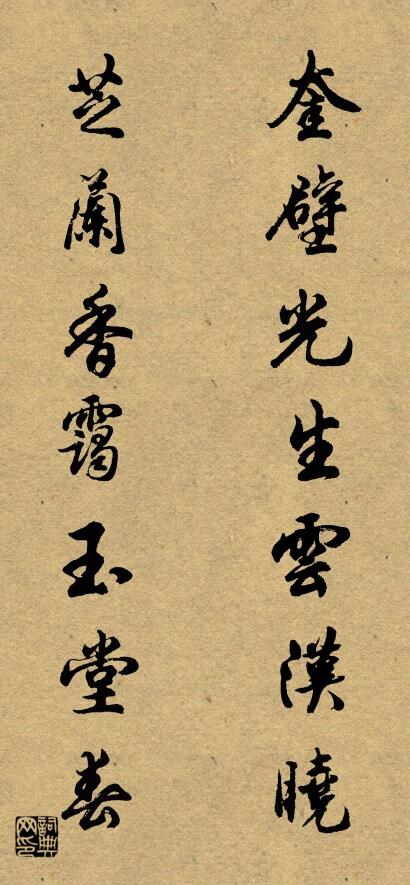 奎壁光生雲漢曉
芝蘭香靄玉堂春
詞典网印